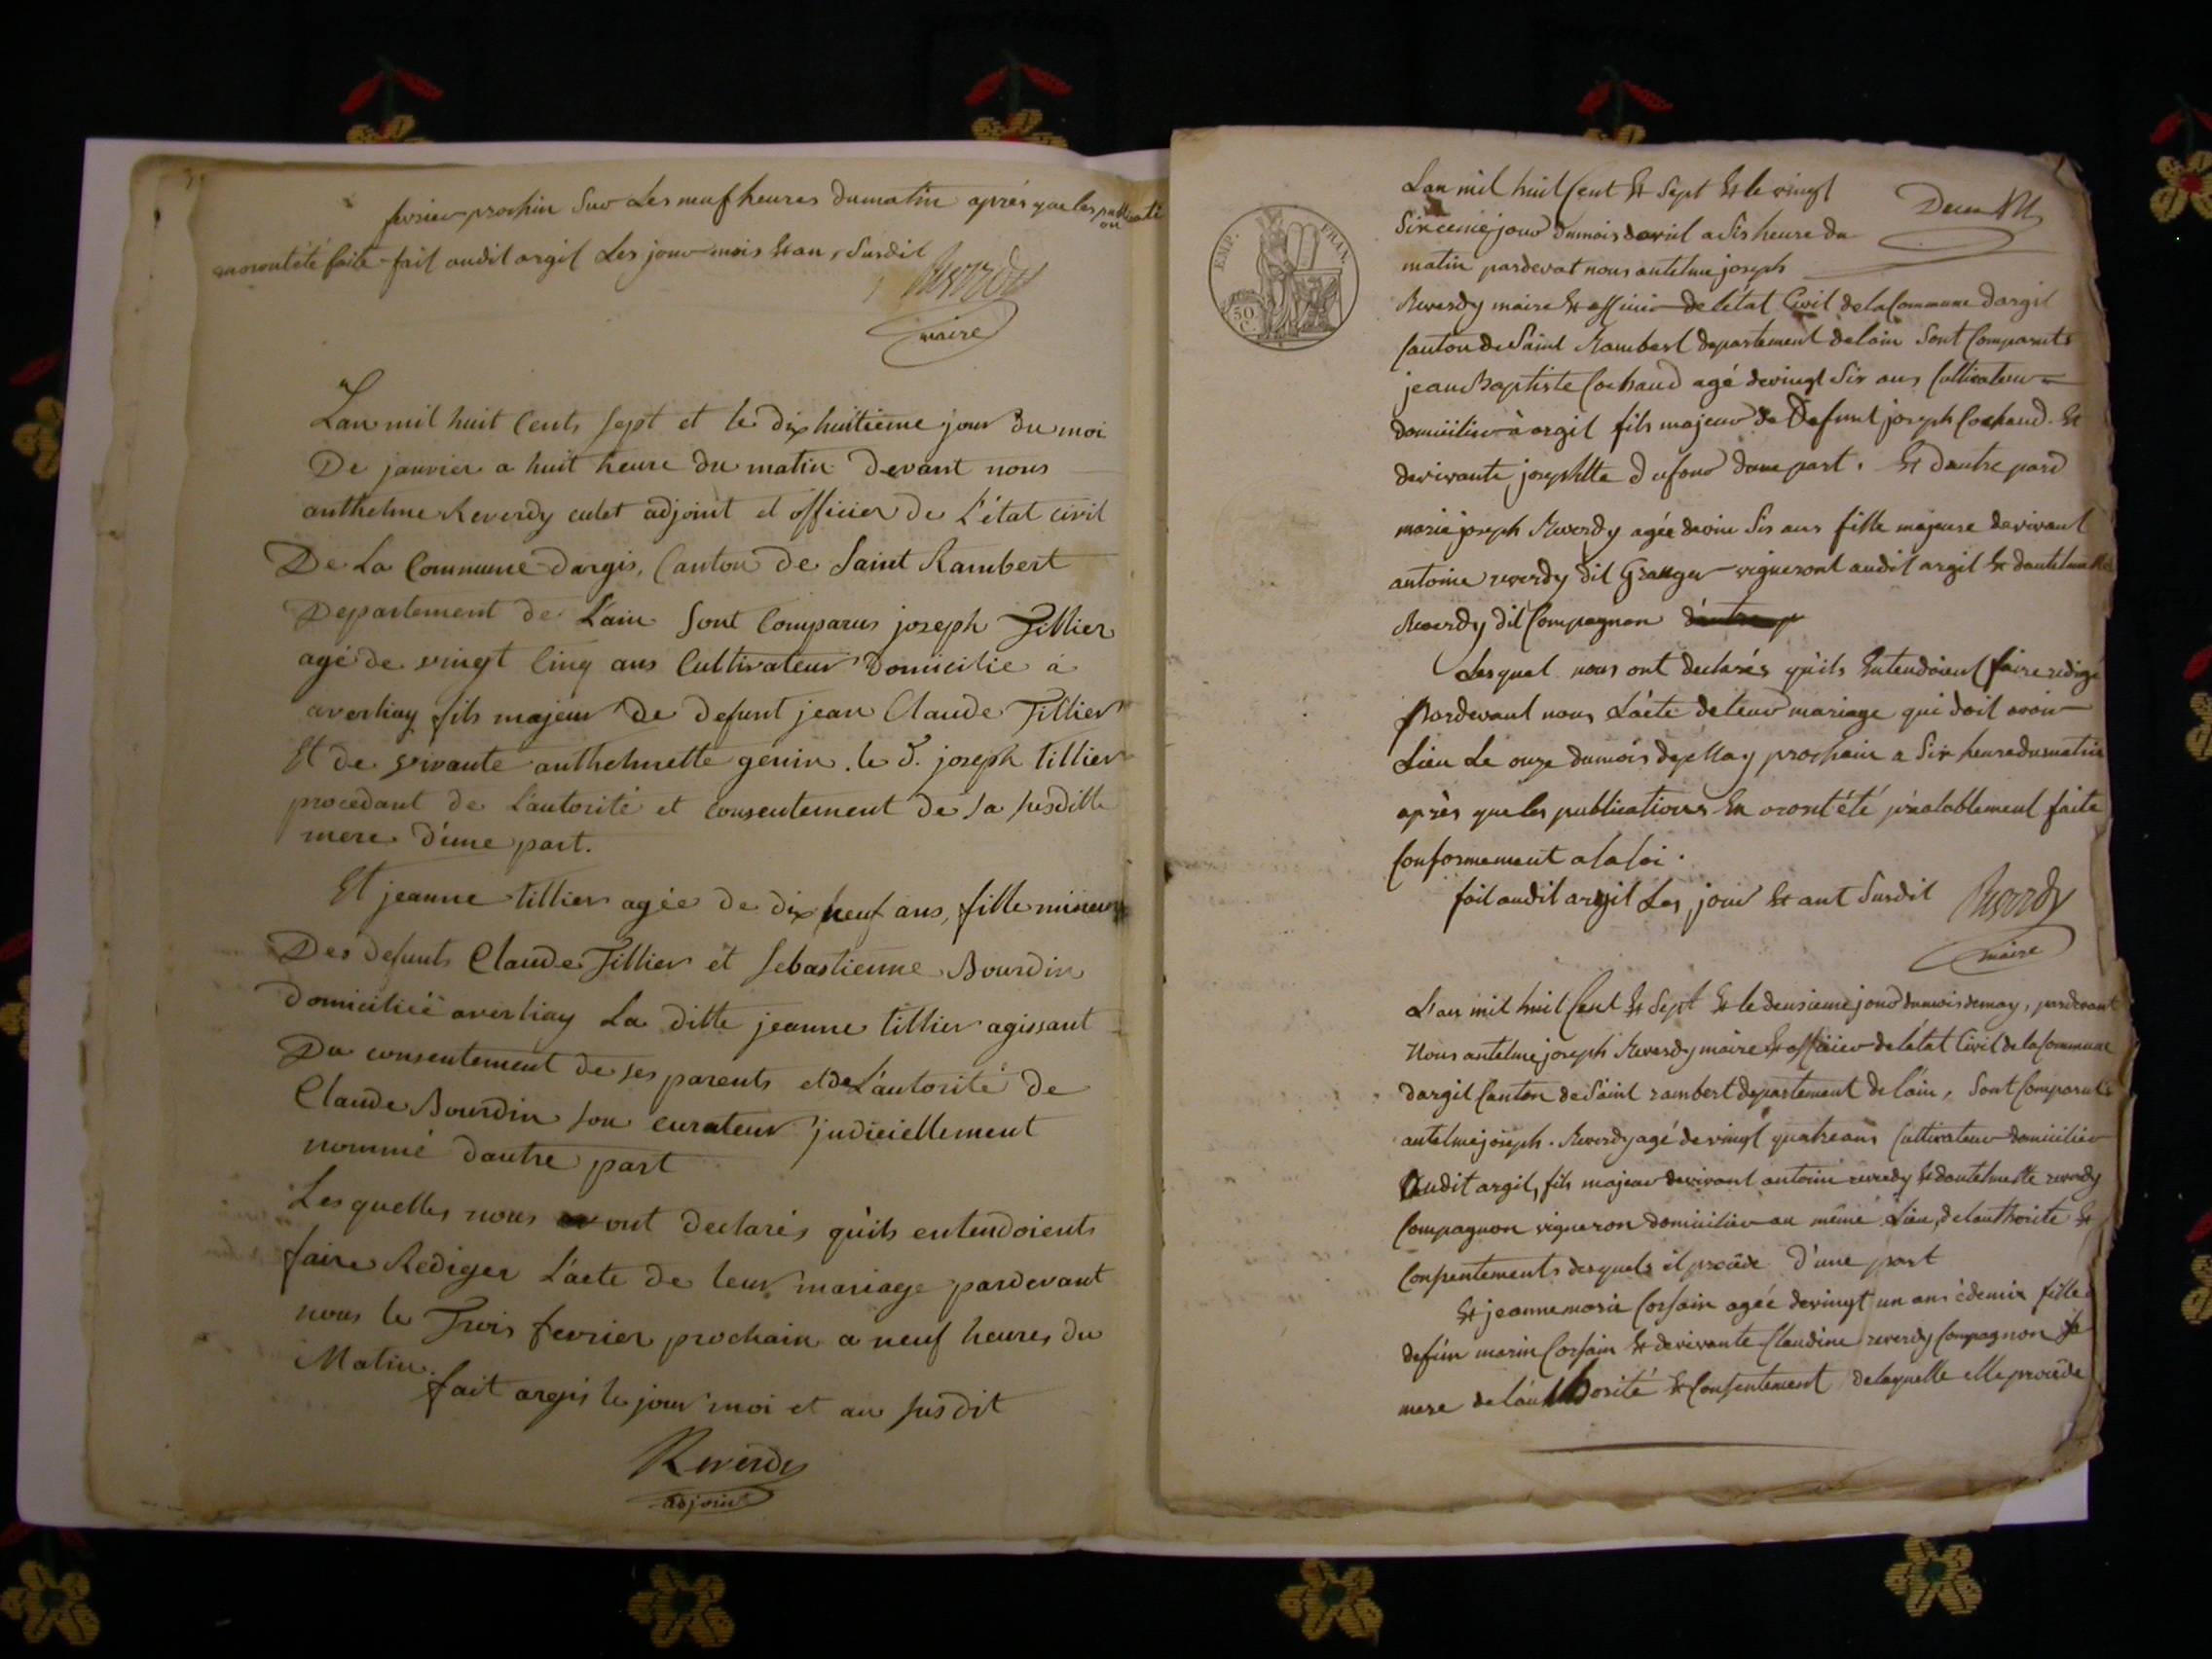 fevrier prochin Sur Les neuf heures dumatin après que les publicati
on
en oront été faite fait audit argil Les jour mois et an, Susdit
Reverdy
maire
Lan mil huit Cents sept et le dix huitieme jour du moi
De janvier a huit heure du matin Devant nous
anthelme Reverdy cadet adjoint et officier De L'état civil
De La Commune Dargis, Canton De Saint Rambert
Departement de L'ain Sont Comparus joseph Tillier
agé de vingt Cinq ans Cultivateur Domicilié a
averliay fils majeur De defunt jean Claude Tillier
Et de vivante anthelmette genin. le d. joseph tillier
procedant de L'autorité et consentement de sa susditte
mere d'une part.
Et jeanne tillier agée de dix neuf ans, fille mineure
Des defunts Claude Tillier et Sebastienne Bourdin
Domiciliéé averliay La ditte jeanne tillier agissant
Du consentement de ses parents et de L'autorité de
Claude Bourdin son curateur judiciellement
nommé dautre part
Les quelles nous ont declarés qu'ils entendoients
faire Rediger L'acte de leur mariage pardevant
nous le Trois fevrier prochain a neuf heures du
Matin.
fait argis le jour moi et an susdit
Reverdy
adjoint
EMP. FRAN.
50
C.
Lan mil huit Cent et Sept et le vingt
Sixeme jour dumois davril a Sis heure du
matin pardevat nous antelme joseph
Reverdy maire et officier de l'état Civil de la Commune dargil
Canton de Saint Rambert departement de lain Sont Comparuts
jean Baptiste Cochaud agé devingt Six ans Cultivateur
domicilier à argil fils majeur de Defunt joseph Cochaud et
devivante josephtte dufour dune part. Et dautre pard
marie joseph Reverdy agée devin Sis ans fille majeure devivant
antoine reverdy dit Granger vigneront audit argil et dantelme
Reverdy dit Compagnon
Lesquel nous ont declarés qu'ils Entendoient faire redigé
Pardevant nous L'acte de leur mariage qui doit avoir
Lieu Le onze dumois de May prochain a Six heure dumatin
après que les publications En oront été préalablement faite
Conformement a la loi.
fait audit argil Les jour et ant Susdit Reverdy
maire
L'an mil huit Cent et Sept et le deusieme jour dumois demay, pardevant
Nous antelme joseph Reverdy maire et officier de létat Civil de la Commune
dargil Canton de Saint rambert departement de l'ain, Sont Comparuts
antelme joseph. Reverdy agé devingt quatre ans Cultivateur domicilier
Audit argil, fils majeur devivant antoine reverdy et dantelmette reverdy
Compagnon vigneron domicilier au même Lieu, de lauthorité et
Consentements desquels il procéde D'une part
Et jeanne marie Corsain agée devingt un ans é demix fille d
defun marin Corsain et devivante Claudine reverdy Compagnon Sa
mere de l'authorité et Consentement de laquelle elle procéde